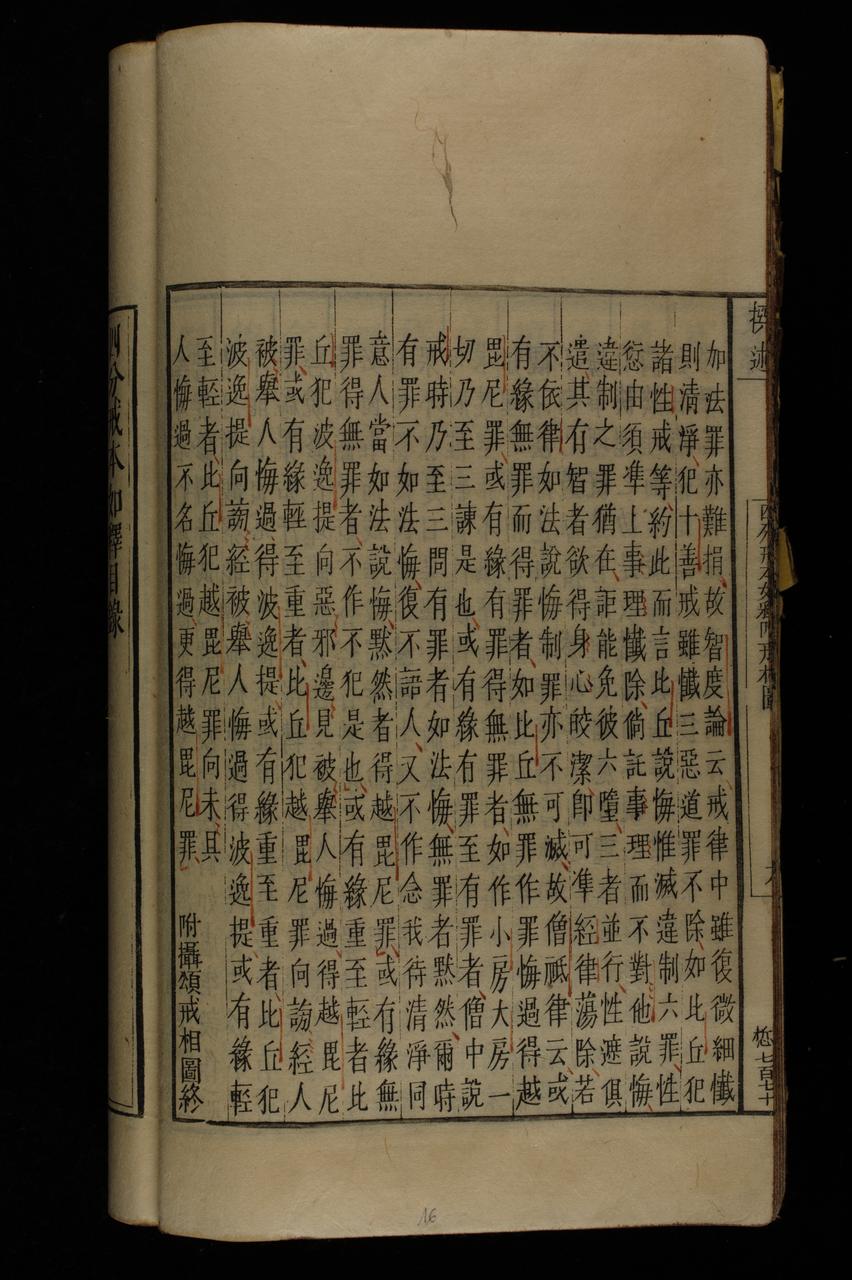 撰述
四分戒本如釋附戒相圖
加法罪亦難捐故智度論云戒律中雖復微細懺
則清淨犯十善戒雖懺三惡道罪不除如比丘犯
諸性戒等約此而言比丘說悔惟滅違制六罪性
愆由須準上事理懺除倘託事理而不對他說悔
違制之罪猶在詎能免彼六墮三者並行性遮俱
遣其有智者欲得身心皎潔卽可準經律蕩除若
不依律如法說悔制罪亦不可滅故僧祇律云或
有緣無罪而得罪者如比丘無罪作罪悔過得越
毘尼罪或有緣有罪得無罪者如作小房大房一
切乃至三諫是也或有緣有罪至有罪者僧中說
戒時乃至三問有罪者如法悔無罪者默然爾時
有罪不如法悔復不語人又不作念我待清淨同
意人當如法說悔默然者得越毘尼罪或有緣無
罪得無罪者不作不犯是也或有緣重至輕者比
丘犯波逸提向惡邪邊見被舉人悔過得越毘尼
罪或有緣輕至重者比丘犯越毘尼罪向謗經人
被舉人悔過得波逸提或有緣重至重者比丘犯
波逸提向謗經被舉人悔過得波逸提或有緣輕
至輕者比丘犯越毘尼罪向未具
人悔過不名悔過更得越毘尼罪 附攝頌戒相圖終
四分戒本如釋目錄
16